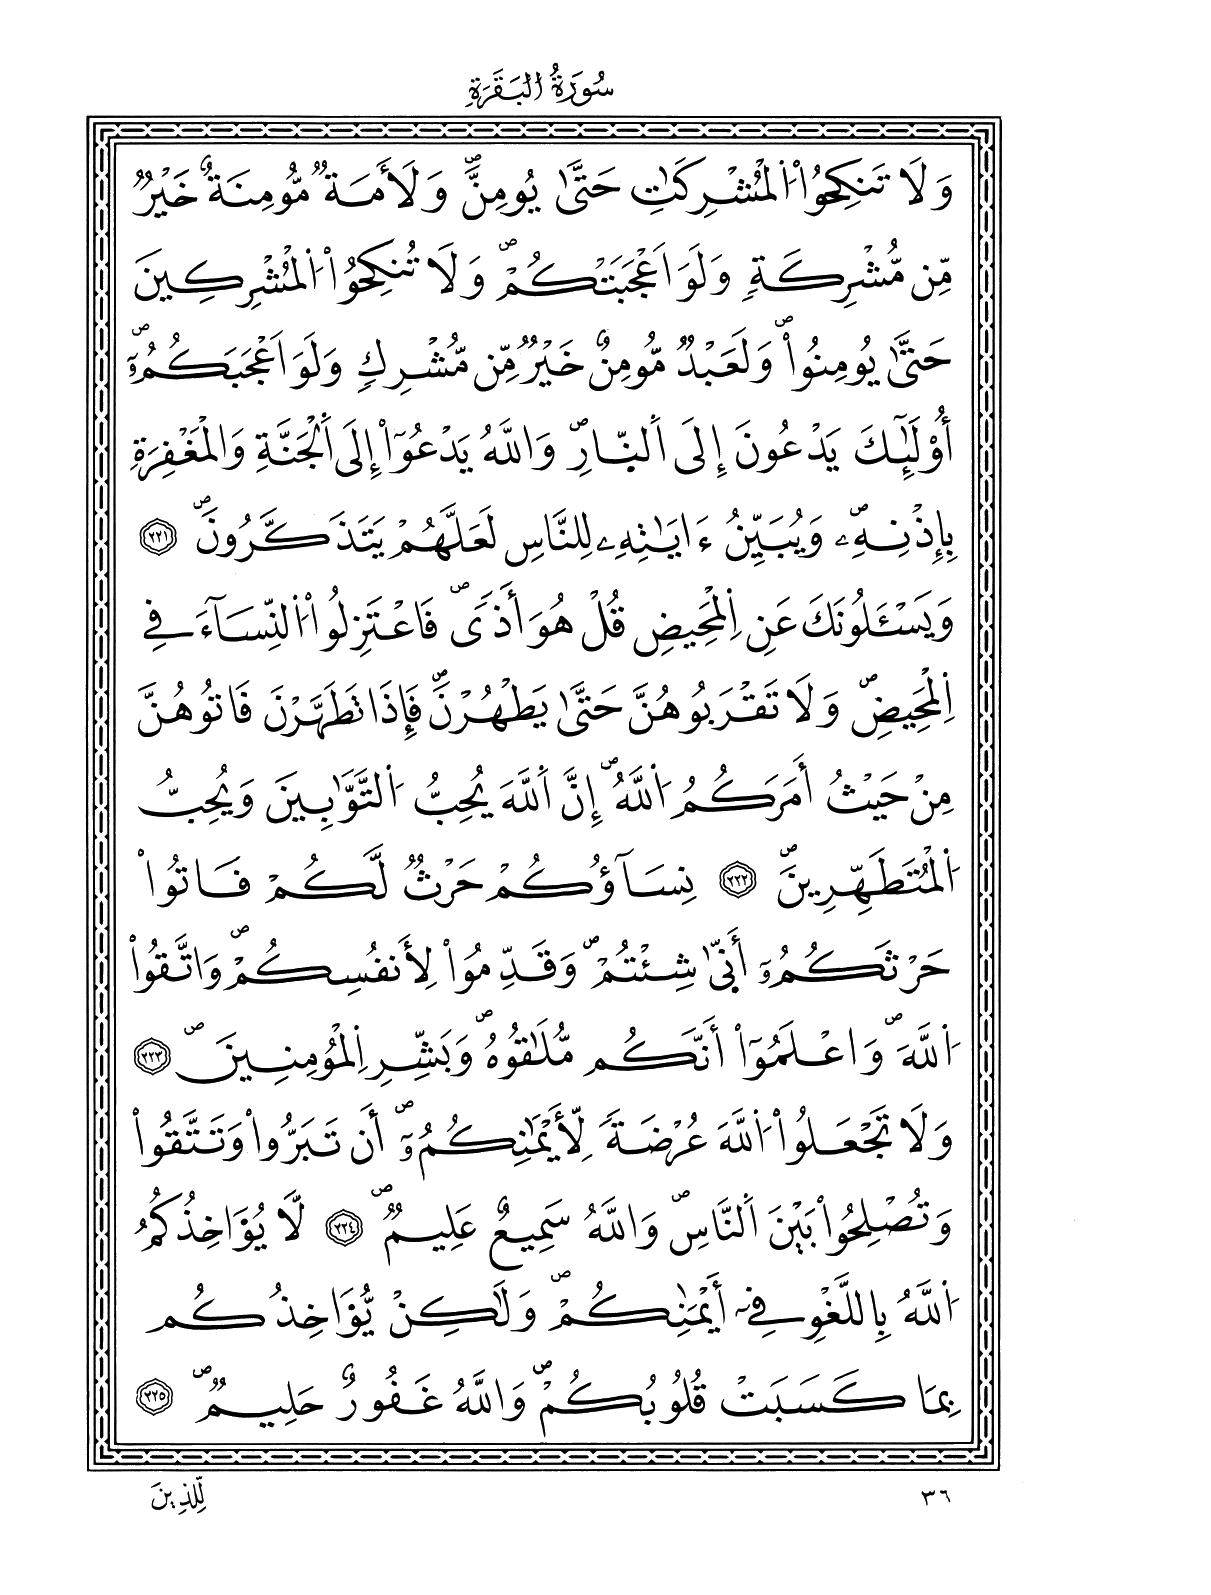 سُورَةُ الْبَقَرَةِ
وَلَا تَنكِحُواْ اُ۬لْمُشْرِكَٰتِ حَتَّىٰ يُومِنَّۖ وَلَأَمَةٞ مُّومِنَةٌ خَيْرٞ
مِّن مُّشْرِكَةٖ وَلَوَ اَعْجَبَتْكُمْۖ وَلَا تُنكِحُواْ اُ۬لْمُشْرِكِينَ
حَتَّىٰ يُومِنُواْۖ وَلَعَبْدٞ مُّومِنٌ خَيْرٞ مِّن مُّشْرِكٖ وَلَوَ اَعْجَبَكُمُۥٓۖ
أُوْلَٰٓئِكَ يَدْعُونَ إِلَى اَ۬لنّ۪ارِۖ وَاللَّهُ يَدْعُوٓاْ إِلَى اَ۬لْجَنَّةِ وَالْمَغْفِرَةِ
بِإِذْنِهِۦۖ وَيُبَيِّنُ ءَايَٰتِهِۦ لِلنَّاسِ لَعَلَّهُمْ يَتَذَكَّرُونَۖ ٢٢١
وَيَسْـَٔلُونَكَ عَنِ اِ۬لْمَحِيضِ قُلْ هُوَ أَذىٗۖ فَاعْتَزِلُواْ اُ۬لنِّسَآءَ فِي
اِ۬لْمَحِيضِۖ وَلَا تَقْرَبُوهُنَّ حَتَّىٰ يَطْهُرْنَۖ فَإِذَا تَطَهَّرْنَ فَاتُوهُنَّ
مِنْ حَيْثُ أَمَرَكُمُ اُ۬للَّهُۖ إِنَّ اَ۬للَّهَ يُحِبُّ اُ۬لتَّوَّٰبِينَ وَيُحِبُّ
اُ۬لْمُتَطَهِّرِينَۖ ٢٢٢ نِسَآؤُكُمْ حَرْثٞ لَّكُمْ فَاتُواْ
حَرْثَكُمُۥٓ أَنّ۪ىٰ شِئْتُمْۖ وَقَدِّمُواْ لِأَنفُسِكُمْۖ وَاتَّقُواْ
اُ۬للَّهَۖ وَاعْلَمُوٓاْ أَنَّكُم مُّلَٰقُوهُۖ وَبَشِّرِ اِ۬لْمُومِنِينَۖ ٢٢٣
وَلَا تَجْعَلُواْ اُ۬للَّهَ عُرْضَةٗ لِّأَيْمَٰنِكُمُۥٓۖ أَن تَبَرُّواْ وَتَتَّقُواْ
وَتُصْلِحُواْ بَيْنَ اَ۬لنَّاسِۖ وَاللَّهُ سَمِيعٌ عَلِيمٞۖ ٢٢٤ لَّا يُؤَاخِذُكُمُ
اُ۬للَّهُ بِاللَّغْوِ فِےٓ أَيْمَٰنِكُمْۖ وَلَٰكِنْ يُّؤَاخِذُكُم
بِمَا كَسَبَتْ قُلُوبُكُمْۖ وَاللَّهُ غَفُورٌ حَلِيمٞۖ ٢٢٥
٣٦
لِّلذِينَ